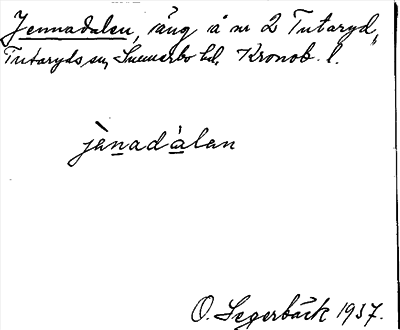 Jennadalen, äng å nr 2 Tutaryd,
Tutaryds sn, Sunnerbo hd, Kronob. l.
jènadàlan
O. Segerbäck 1937.